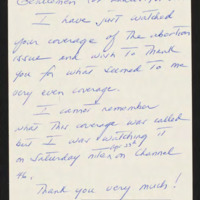 Gentlemen
I have just watched
your coverage of the abortion
issue and wish to thank
you for what seemed to me
very even coverage.
I cannot remember
what this coverage was called
but I was watching it
on Saturday on Channel
46.
Thank you very much!